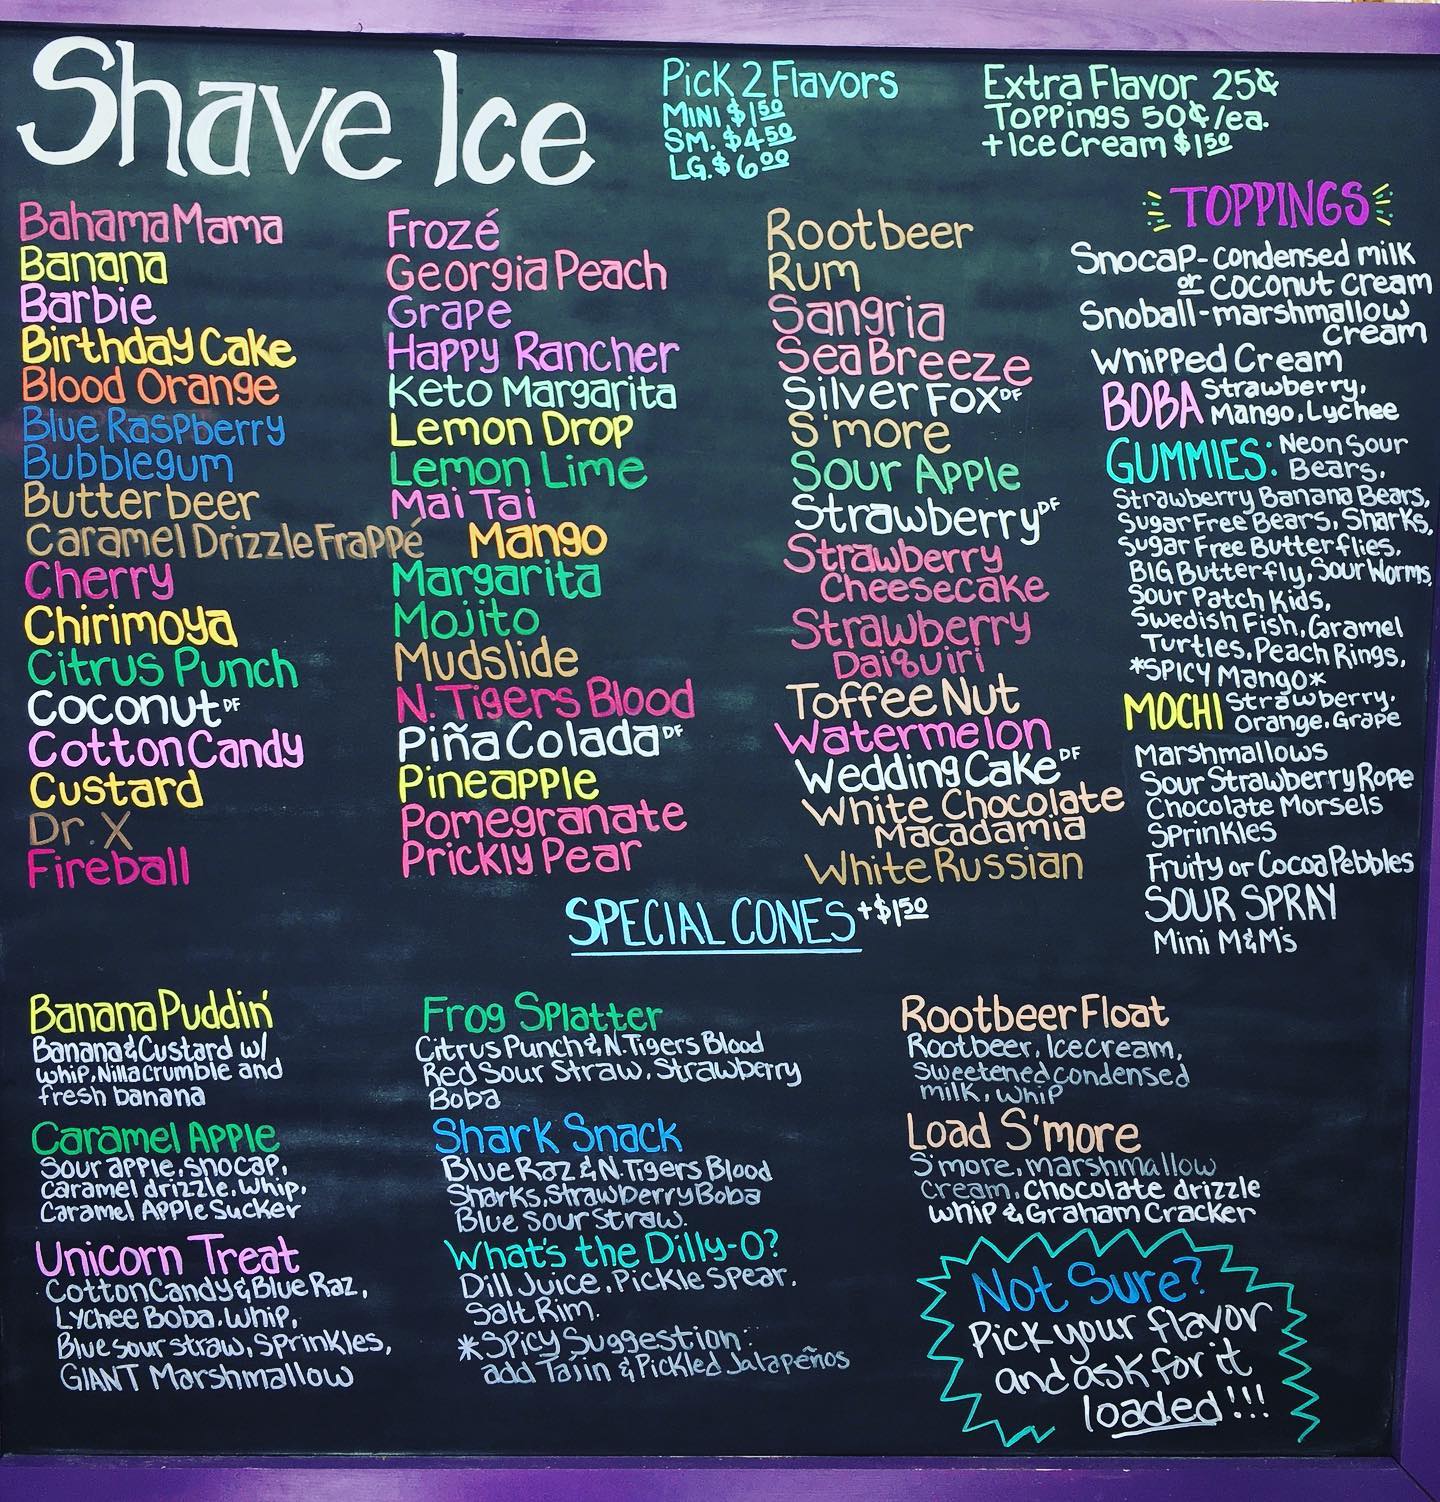 Shave Ice
Pick 2 Flavors
MINI $1.50
SM. $4.50
LG. $6.00
Extra Flavor 25¢
Toppings 50¢/ea.
+ Ice Cream $1.50
Bahama Mama
Banana
Barbie
Birthday Cake
Blood Orange
Blue Raspberry
Bubblegum
Butterbeer
Caramel Drizzle Frappé
Cherry
Chirimoya
Citrus Punch
Coconut DF
Cotton Candy
Custard
Dr. X
Fireball
Frozé
Georgia Peach
Grape
Happy Rancher
Keto Margarita
Lemon Drop
Lemon Lime
Mai Tai
Mango
Margarita
Mojito
Mudslide
N. Tigers Blood
Piña Colada DF
Pineapple
Pomegranate
Prickly Pear
Rootbeer
Rum
Sangria
Sea Breeze
Silver Fox DF
S'more
Sour Apple
Strawberry DF
Strawberry
Cheesecake
Strawberry
Daiquiri
Toffee Nut
Watermelon
Wedding Cake DF
White Chocolate
Macadamia
White Russian
TOPPINGS
Snocap - condensed milk
or coconut cream
Snoball - marshmallow
cream
Whipped Cream
BOBA Strawberry,
Mango, Lychee
GUMMIES: Neon Sour
Bears,
Strawberry Banana Bears,
Sugar Free Bears, Sharks,
Sugar Free Butterflies,
BIG Butterfly, Sour Worms,
Sour Patch Kids,
Swedish Fish, Caramel
Turtles, Peach Rings,
*SPICY Mango*
MOCHI Strawberry,
Orange, Grape
Marshmallows
Sour Strawberry Rope
Chocolate Morsels
Sprinkles
Fruity or Cocoa Pebbles
SOUR SPRAY
Mini M&M's
SPECIAL CONES +$1.50
Banana Puddin'
Banana & Custard w/
whip, Nilla crumble and
fresh banana
Caramel Apple
Sour apple, snocap,
Caramel drizzle, whip,
Caramel Apple Sucker
Unicorn Treat
Cotton Candy & Blue Raz,
Lychee Boba, Whip,
Blue sour straw, Sprinkles,
GIANT Marshmallow
Frog Splatter
Citrus Punch & N. Tigers Blood
Red Sour Straw, Strawberry
Boba
Shark Snack
Blue Raz & N. Tigers Blood
Sharks, Strawberry Boba
Blue Sour Straw.
What's the Dilly-O?
Dill Juice, Pickle Spear,
Salt Rim.
*Spicy Suggestion:
add Tajin & Pickled Jalapeños
Rootbeer Float
Rootbeer, Icecream,
Sweetened condensed
milk, whip
Load S'more
S'more, marshmallow
cream, Chocolate drizzle
whip & Graham Cracker
Not Sure?
Pick your flavor
and ask for it
loaded!!!